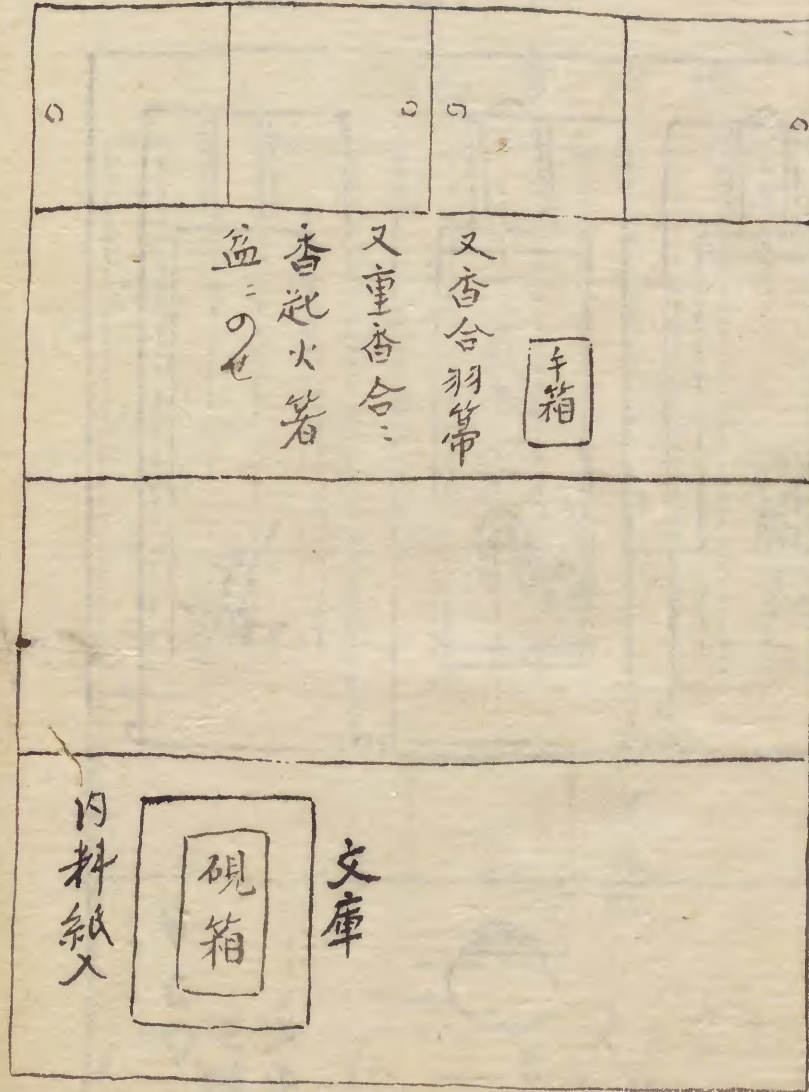 手箱
又香合羽箒
又重香合ニ
香匙火箸
盆ニのせ
文庫
硯箱
内料紙入